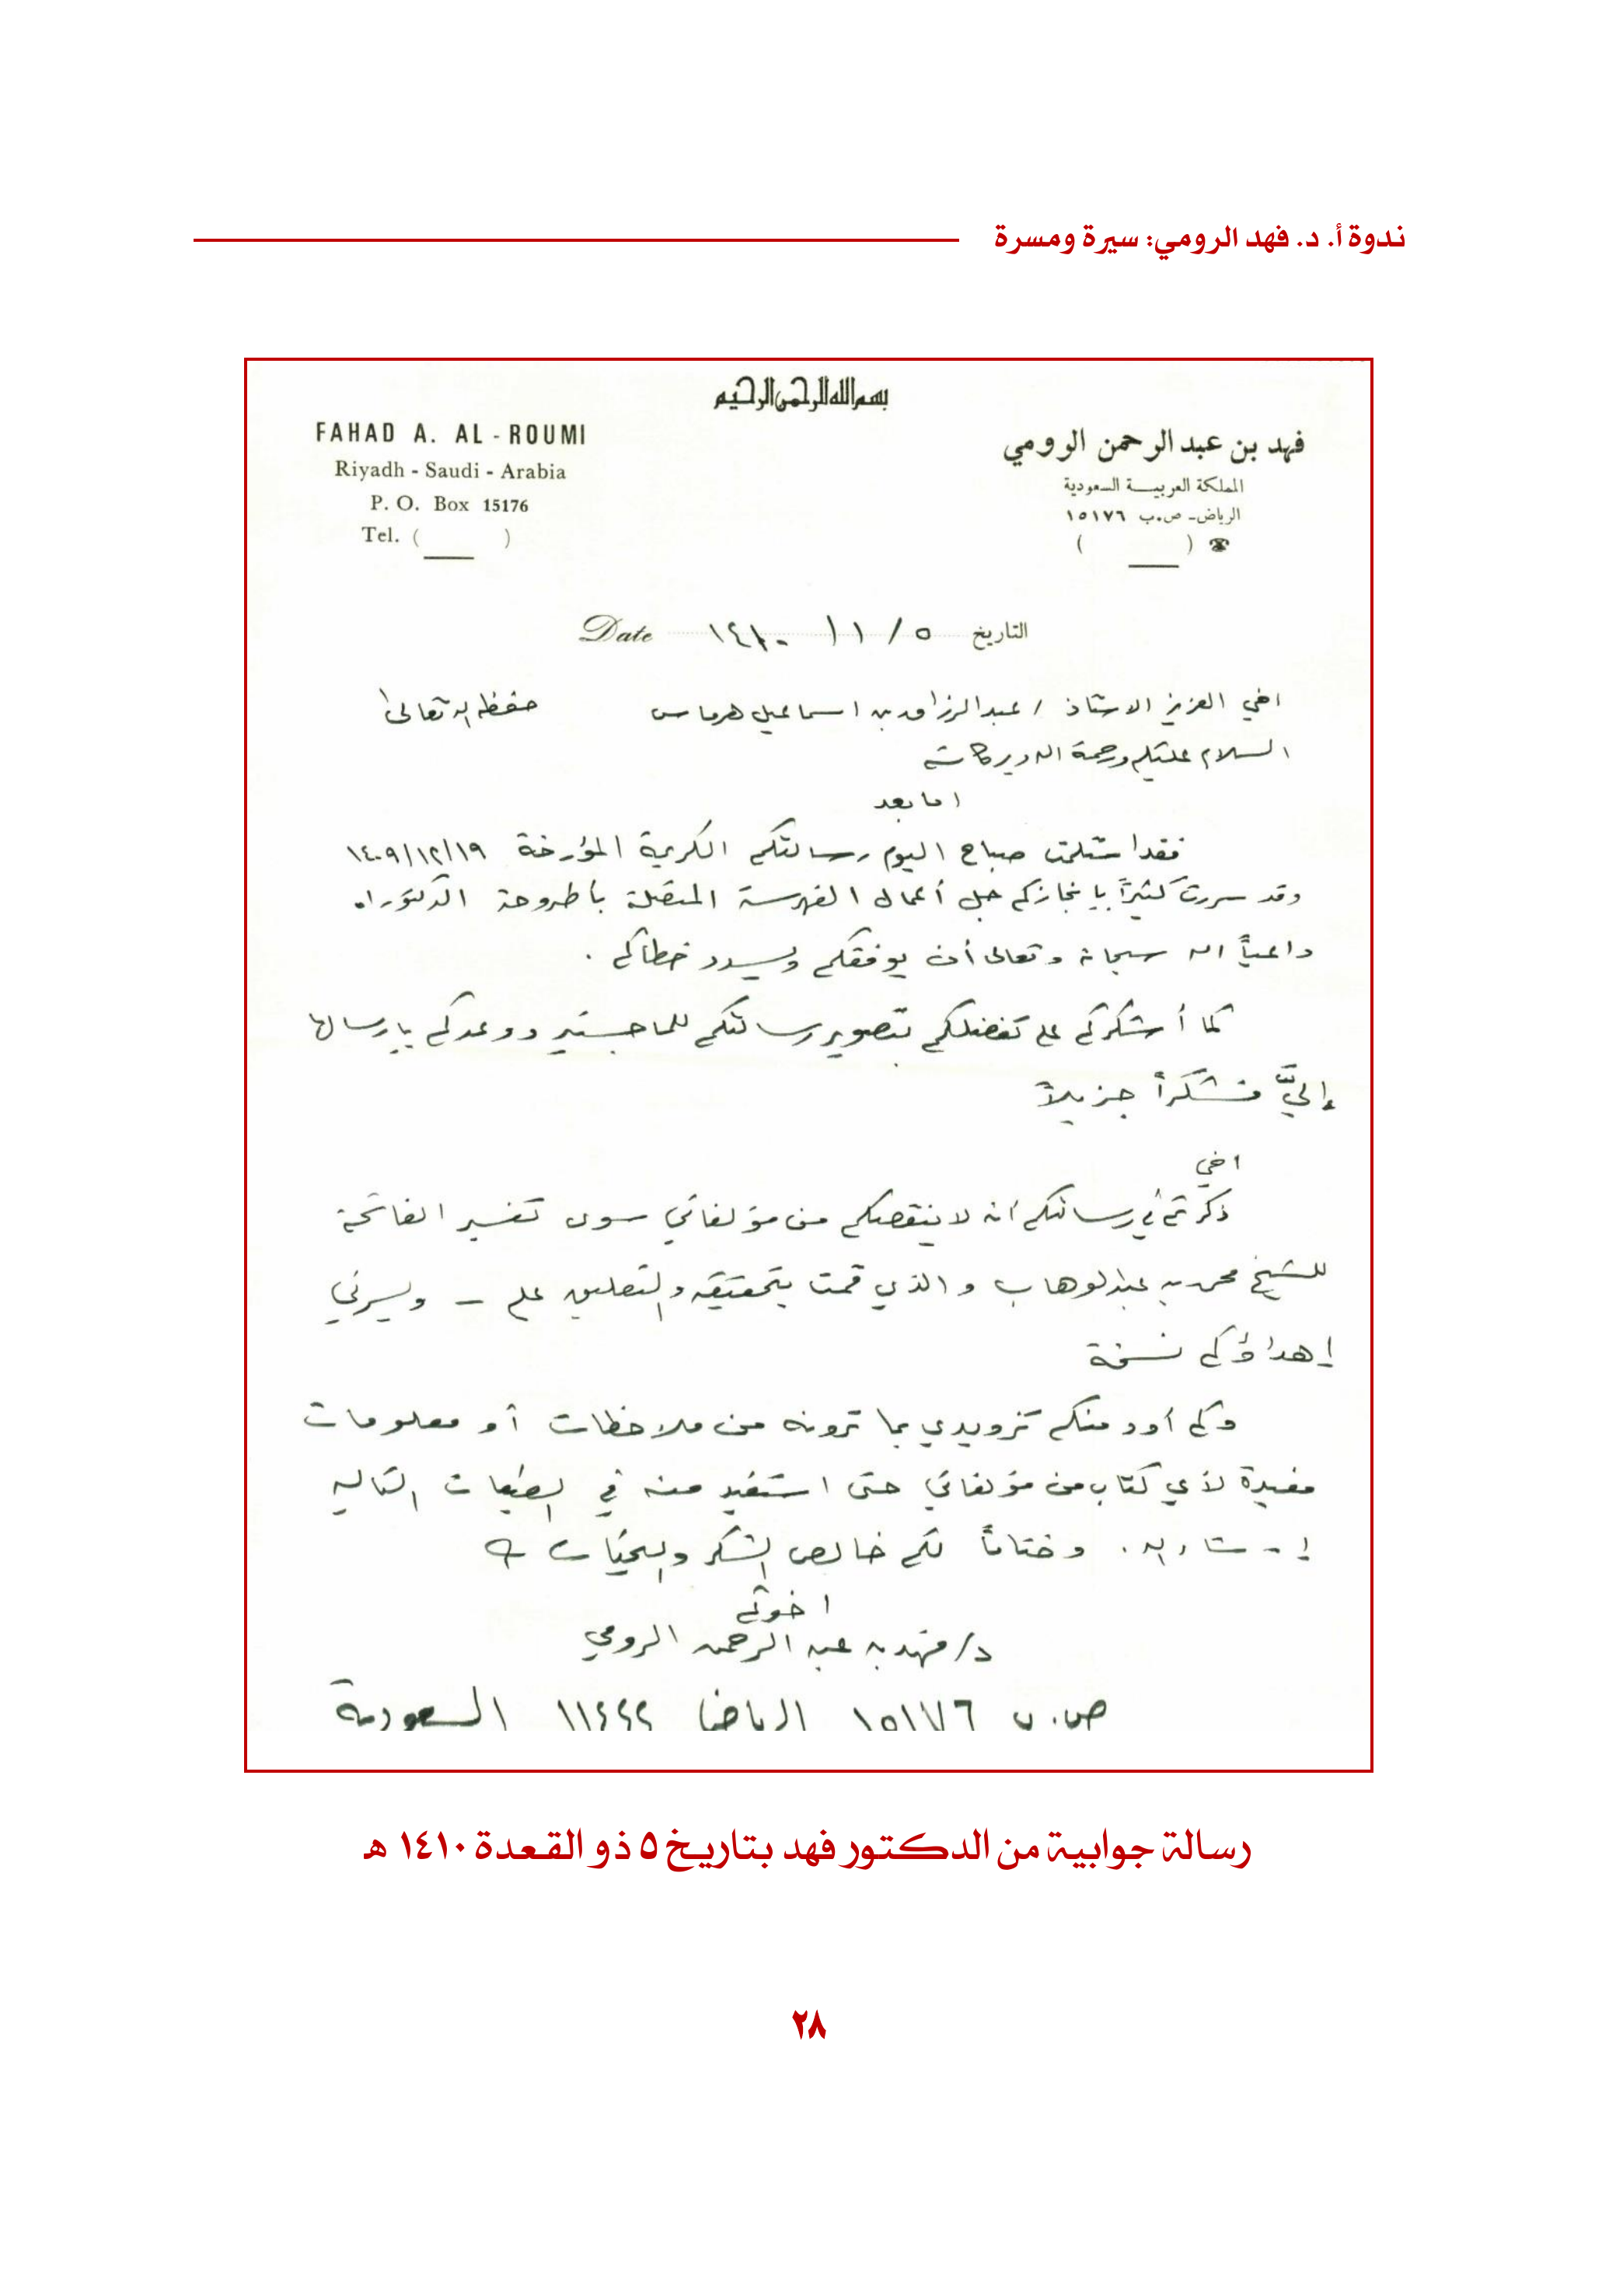 ندوة أ. د. فهد الرومي: سيرة ومسرة
بسم الله الرحمن الرحيم
فهد بن عبد الرحمن الرومي
المملكة العربية السعودية
الرياض- ص.ب ١٥١٧٦
☎ ( )
FAHAD A. AL - ROUMI
Riyadh - Saudi - Arabia
P. O. Box 15176
Tel. ( )
التاريخ ٥ / ١١ ١٤١٠ Date
اخي العزيز الاستاذ / عبدالرزاق بن اسماعيل هرماس حفظه الله تعالى
السلام عليكم ورحمة الله وبركاته
اما بعد
فقد استلمت صباح اليوم رسالتكم الكريمة المؤرخة ١٤٠٩/١٢/١٩
وقد سررت كثيراً بإنجازكم جل أعمال الفهرسة المتصلة بأطروحة الدكتوراه
داعياً الله سبحانه وتعالى أن يوفقكم ويسدد خطاكم .
كما أشكركم على تفضلكم بتصوير رسالتكم للماجستير ووعدكم بإرسالها
إليَّ فشكراً جزيلاً
اخي
ذكرتم في رسالتكم أنه لا ينقصكم من مؤلفاتي سوى تفسير الفاتحة
للشيخ محمد بن عبدالوهاب والذي قمت بتحقيقه والتعليق عليه – ويسرني
إهداؤكم نسخة
وكم أود منكم تزويدي بما ترونه من ملاحظات أو معلومات
مفيدة لأي كتاب من مؤلفاتي حتى استفيد منه في الطبعات التاليه
إن شاء الله . وختاماً لكم خالص الشكر والتحيات
اخوكم
د/ فهد بن عبد الرحمن الرومي
ص. ب ١٥١٧٦ الرياض ١١٤٤٤ السعودية
رسالة جوابية من الدكتور فهد بتاريخ ٥ ذو القعدة ١٤١٠ هـ
٢٨